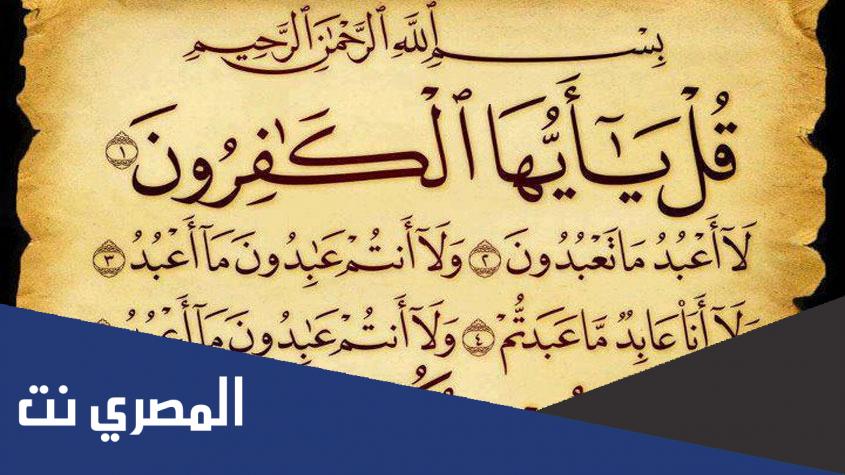 بِسْمِ ٱللَّهِ ٱلرَّحْمَٰنِ ٱلرَّحِيمِ
قُلْ يَٰٓأَيُّهَا ٱلْكَٰفِرُونَ ١
لَآ أَعْبُدُ مَا تَعْبُدُونَ ٢ وَلَآ أَنتُمْ عَٰبِدُونَ مَآ أَعْبُدُ ٣
وَلَآ أَنَا۠ عَابِدٌ مَّا عَبَدتُّمْ ٤ وَلَآ أَنتُمْ عَٰبِدُونَ مَآ أَعْبُدُ
المصري نت